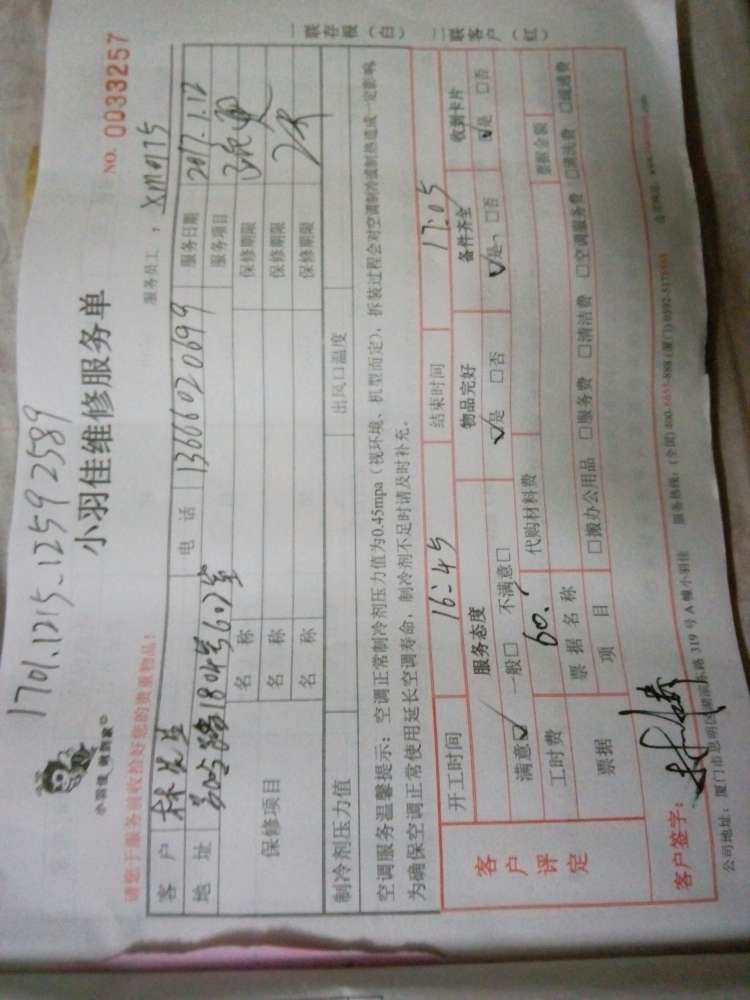 1701.1215.12592589
小羽佳 就到家
小羽佳维修服务单
NO. 0033257
请您于服务前收拾好您的贵重物品！
服务员工： XM0175
客户 林先生 电话 13666020699 服务日期 2017.1.12
地址 路1804号602室 服务项目
保修项目 名称 保修期限
名称 保修期限
名称 保修期限
制冷剂压力值 出风口温度
空调服务温馨提示：空调正常制冷剂压力值为0.45mpa（视环境、机型而定），拆装过程会对空调制冷或制热造成一定影响，
为确保空调正常使用延长空调寿命，制冷剂不足时请及时补充。
一联存根（白） 二联客户（红）
客户评定
开工时间 16:45 结束时间 17:05
服务态度 物品完好 备件齐全 收到卡片
满意☑ 一般□ 不满意□ ☑是 □否 ☑是 □否 ☑是 □否
工时费 60. 代购材料费
票据 票据名称 票据金额
项目 □搬办公用品 □服务费 □清洁费 □空调服务费 □清洗费 □疏通费
客户签字：
公司地址：厦门市思明区湖滨东路 319 号 A 幢小羽佳 服务热线：（全国）400-